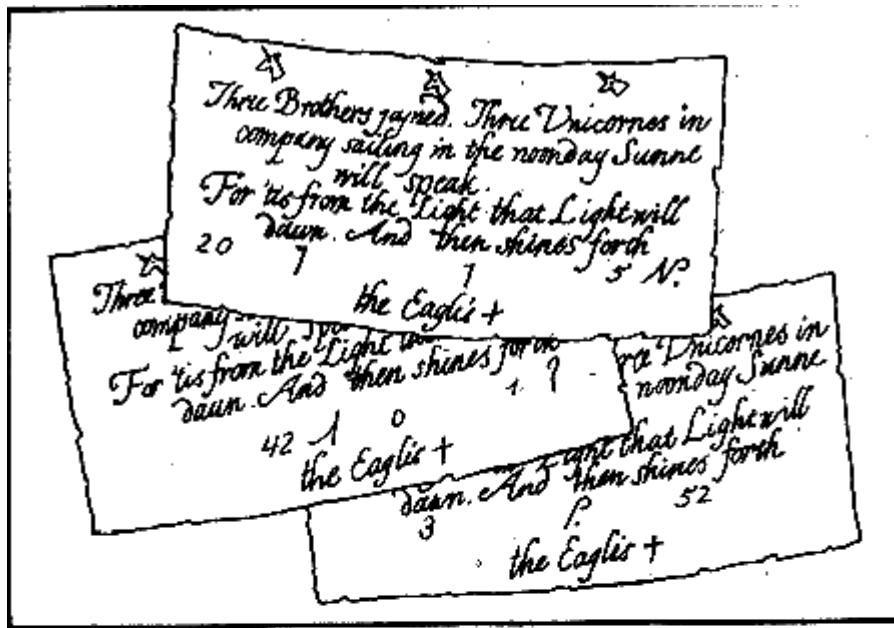 Three Brothers joyned. Three Unicornes in
company sailing in the noonday Sunne
will speak.
For 'tis from the Light that Light will
dawn. And then shines forth
20 7 1 5 N.
the Eaglis +
Three
company
will
For 'tis from the Light
dawn. And then shines forth
42 1 0 1
the Eaglis +
Unicornes in
noonday Sunne
that Light will
dawn. And then shines forth
3 52
the Eaglis +